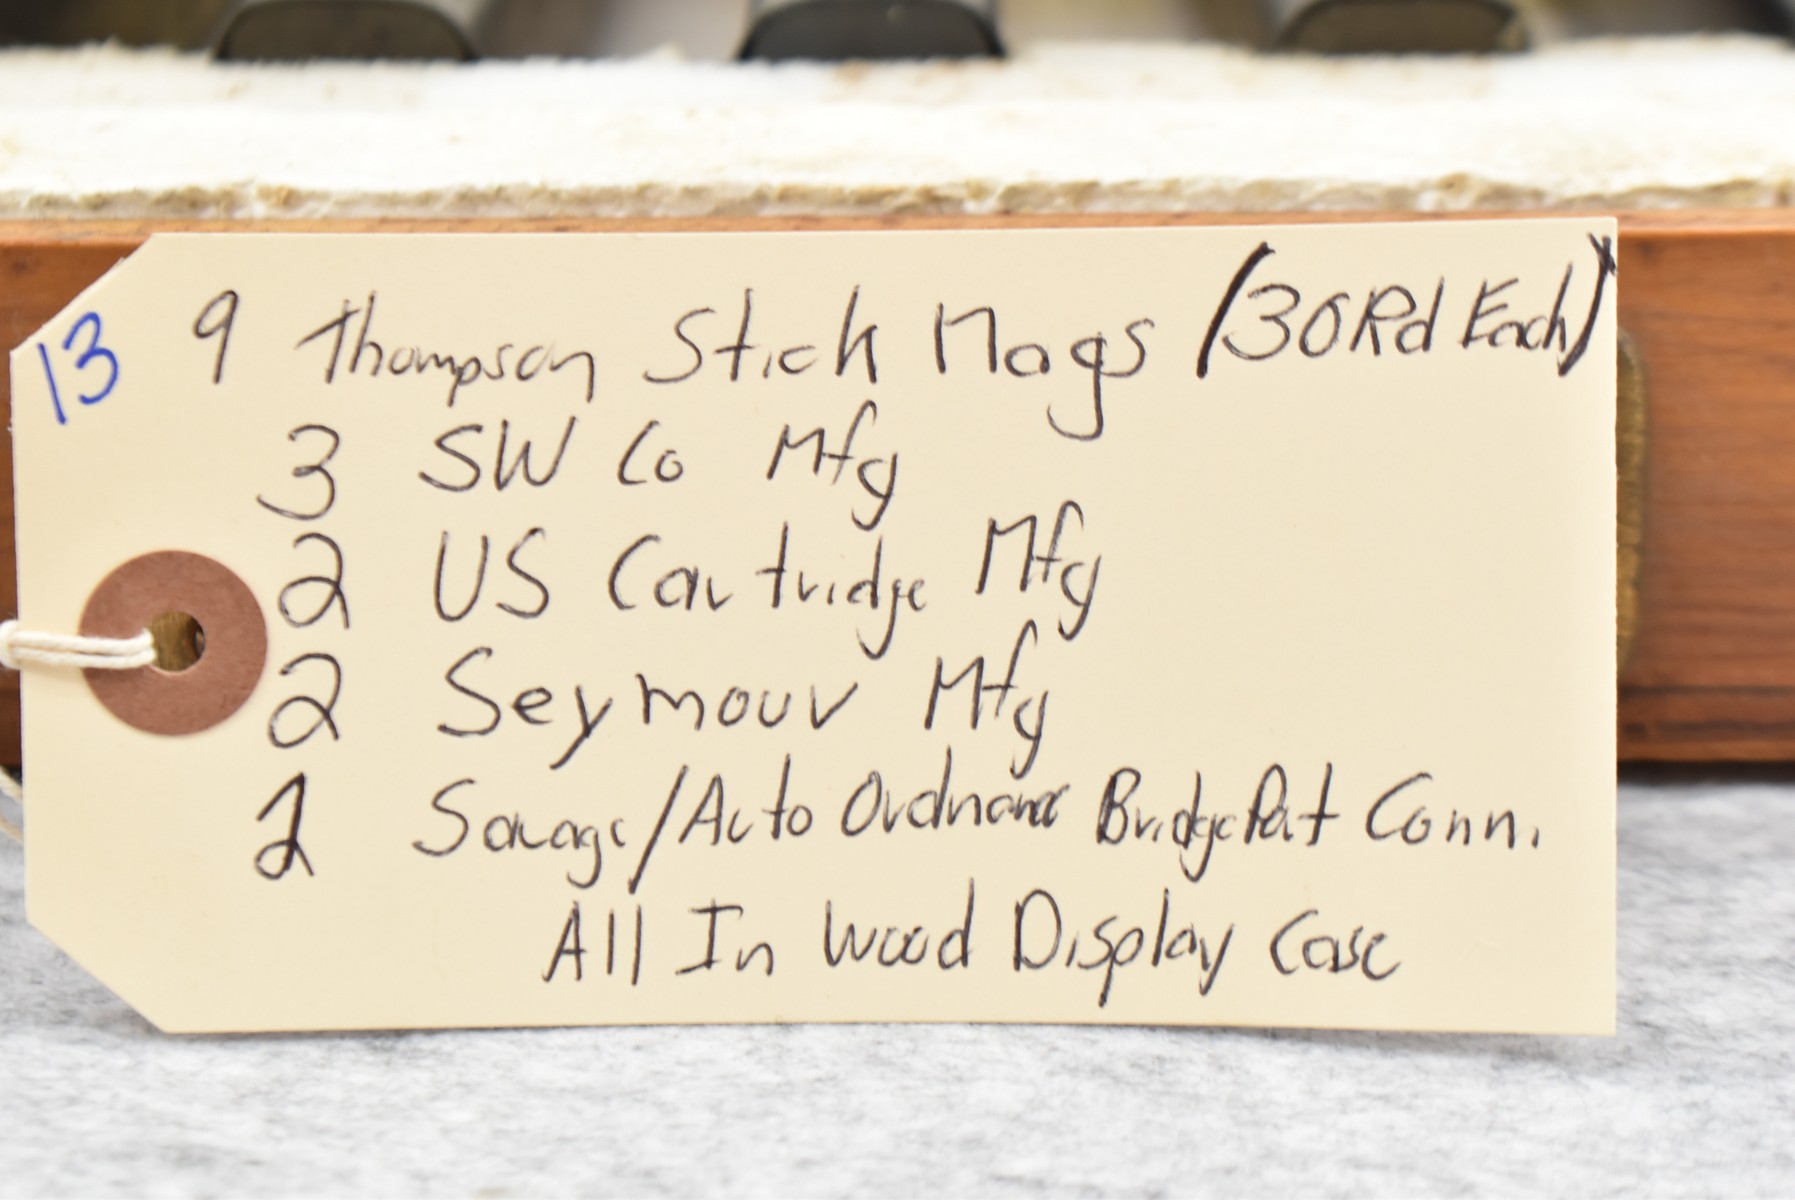 13 9 Thompson Stick Mags (30Rd Each)
3 SW Co Mfg
2 US Cartridge Mfg
2 Seymour Mfg
2 Savage/Auto Ordnance BridgePort Conn.
All In Wood Display Case